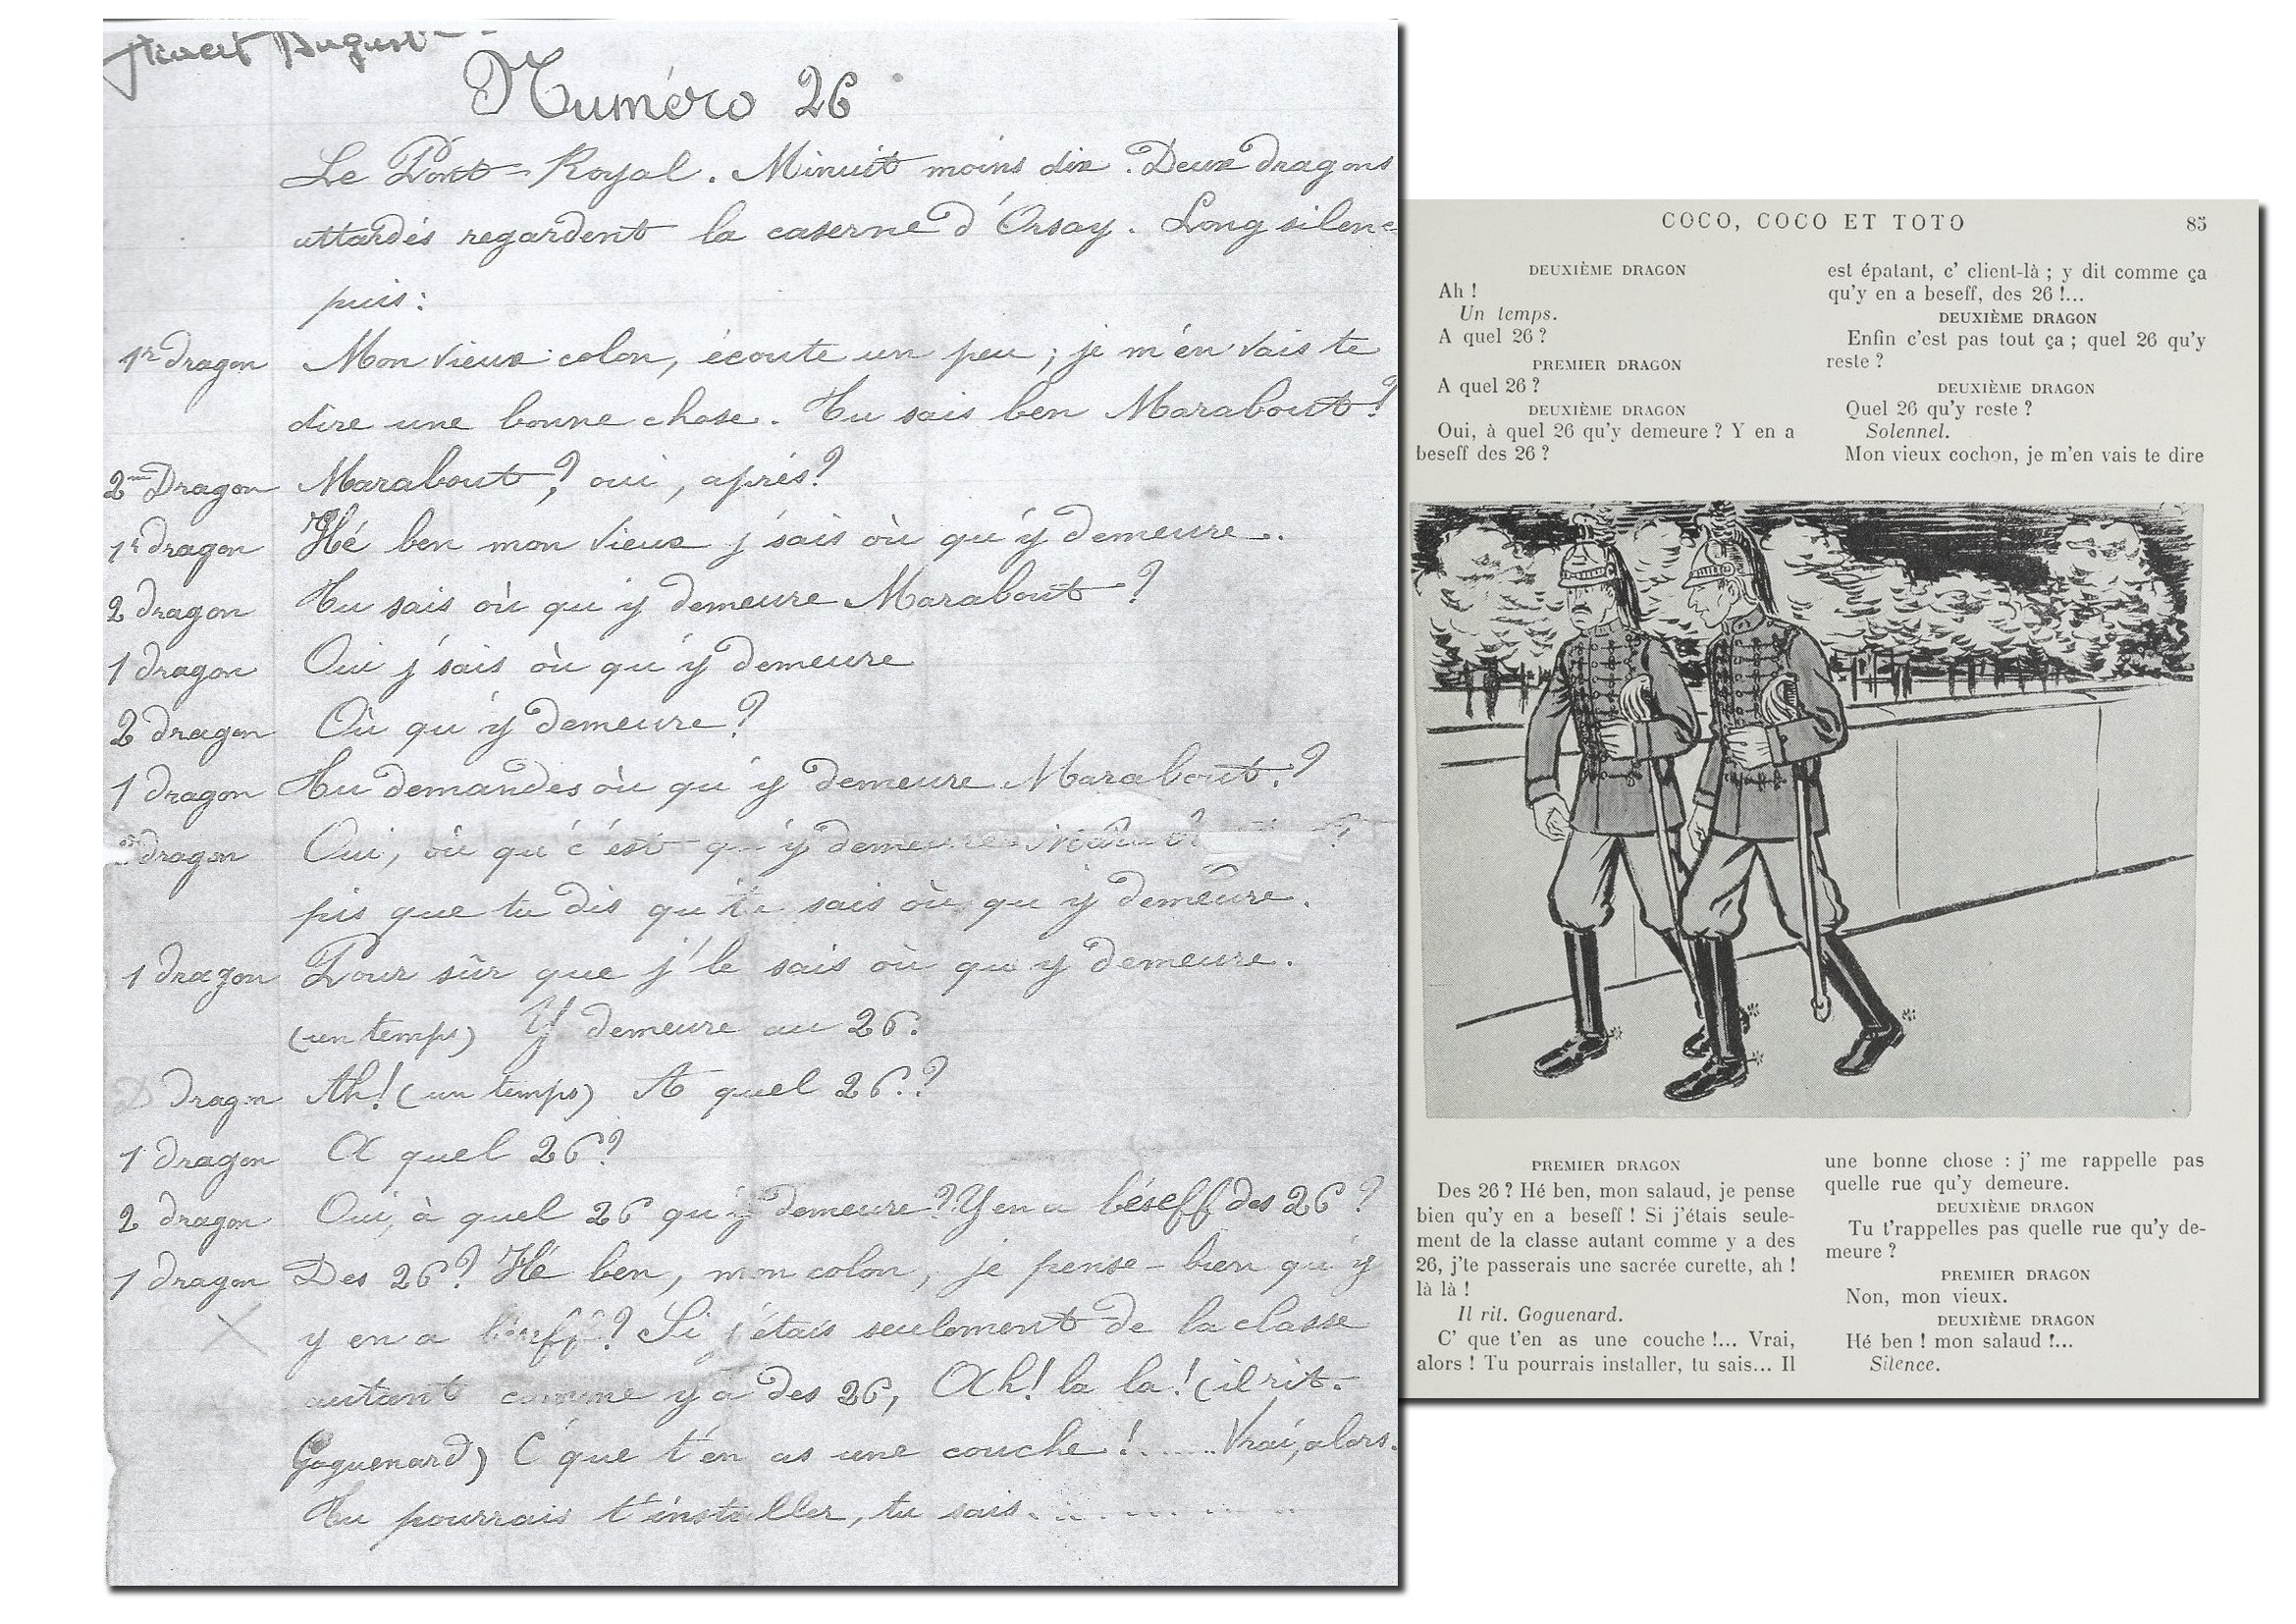 August
Numéro 26
Le Pont-Royal. Minuit moins dix. Deux dragons
attardés regardent la caserne d'Orsay. Long silenc
puis:
1r dragon Mon vieux colon, écoute un peu; je m'en vais te
dire une bonne chose. Tu sais ben Marabout?
2me Dragon Marabout? oui, après?
1r dragon Hé ben mon vieux j'sais où qu'y demeure..
2 dragon Tu sais où qu'y demeure Marabout?
1 dragon Oui j'sais où qu'y demeure
2 dragon Où qu'y demeure?
1 dragon Tu demandes où qu'y demeure Marabout.?
dragon Oui, où qu'c'est qu'y demeure ?
pis que tu dis qu' sais où qu'y demeure.
1 dragon Pour sûr que j'le sais où qu'y demeure.
(un temps) Y demeure au 26.
D dragon Ah! (un temps) A quel 26.?
1 dragon A quel 26?
2 dragon Oui, à quel 26 qu'y demeure? Y en a béseff des 26?
1 dragon Des 26? Hé ben, mon colon, je pense-bien qu'y
y en a ? Si j'étais seulement de la classe
autant comme y a des 26, Ah! la la! (il rit.
Goguenard) C'que t'en as une couche!..... Vrai, alors.
Tu pourrais t'installer, tu sais..........
COCO, COCO ET TOTO 85
DEUXIÈME DRAGON
Ah !
Un temps.
A quel 26 ?
PREMIER DRAGON
A quel 26 ?
DEUXIÈME DRAGON
Oui, à quel 26 qu'y demeure ? Y en a
beseff des 26 ?
PREMIER DRAGON
Des 26 ? Hé ben, mon salaud, je pense
bien qu'y en a beseff ! Si j'étais seule-
ment de la classe autant comme y a des
26, j'te passerais une sacrée curette, ah !
là là !
Il rit. Goguenard.
C' que t'en as une couche !... Vrai,
alors ! Tu pourrais installer, tu sais... Il
est épatant, c' client-là ; y dit comme ça
qu'y en a beseff, des 26 !...
DEUXIÈME DRAGON
Enfin c'est pas tout ça ; quel 26 qu'y
reste ?
DEUXIÈME DRAGON
Quel 26 qu'y reste ?
Solennel.
Mon vieux cochon, je m'en vais te dire
une bonne chose : j' me rappelle pas
quelle rue qu'y demeure.
DEUXIÈME DRAGON
Tu t'rappelles pas quelle rue qu'y de-
meure ?
PREMIER DRAGON
Non, mon vieux.
DEUXIÈME DRAGON
Hé ben ! mon salaud !...
Silence.